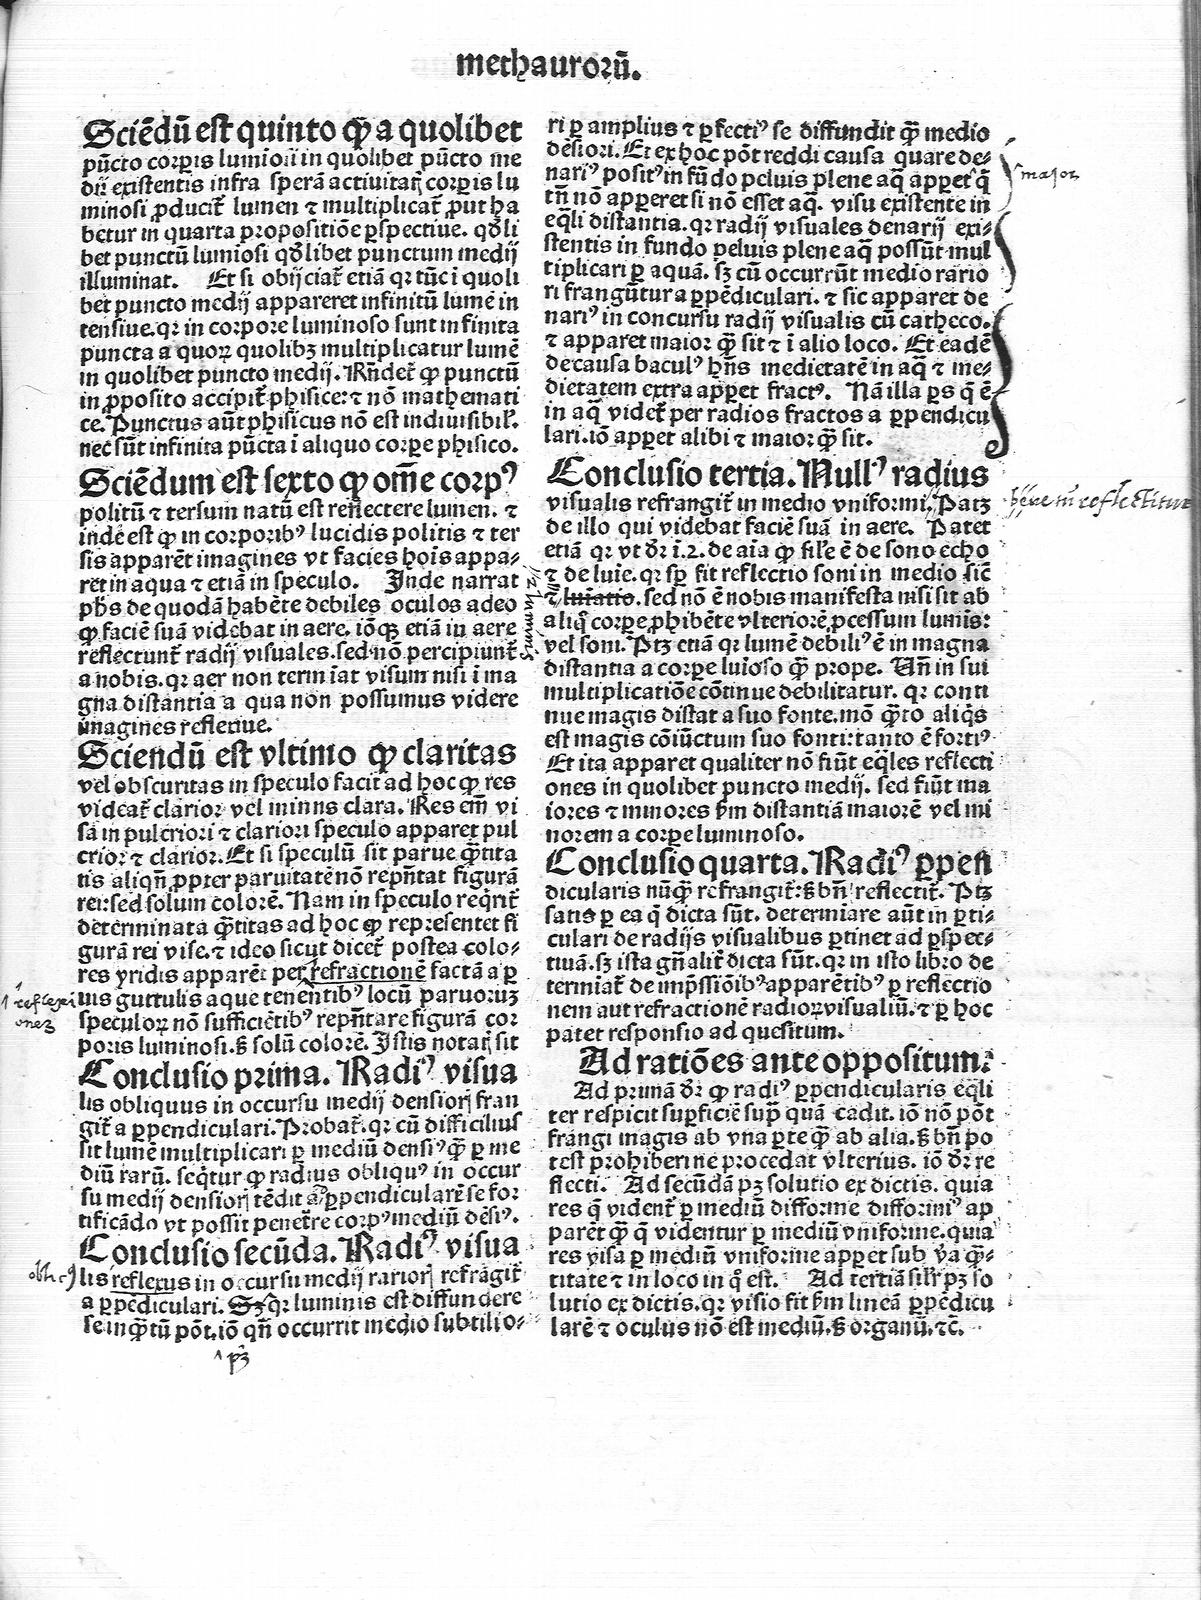 methauroꝝ̃.
Sciẽdũ est quinto ꝙ a quolibet
pũcto corꝑis lumiosi in quolibet pũcto me
dij existentis infra sperã actiuitatꝭ corꝑis lu
minosi ꝓducit᷑ lumen ⁊ multiplicat᷑ ꝓut ha
betur in quarta propositiõe ꝑspectiue. qđli
bet punctũ lumiosi qđlibet punctum medij
illuminat. Et si obijciat᷑ etiã qꝛ tũc i quoli
bet puncto medij appareret infinitũ lumẽ in
tensiue. qꝛ in corpore luminoso sunt infinita
puncta a quoꝝ quolibꝫ multiplicatur lumẽ
in quolibet puncto medij. Rñdet᷑ ꝙ punctũ
in ꝓposito accipit᷑ phisice: ⁊ nõ mathemati
ce. Punctus aũt phisicus nõ est indiuisibil᷑.
nec sũt infinita pũcta ĩ aliquo corꝑe phisico.
Sciẽdum est sexto ꝙ om̃e corpꝰ
politũ ⁊ tersum natũ est reflectere lumen. ⁊
indẽ est ꝙ in corporibꝰ lucidis politis ⁊ ter
sis apparẽt imagines vt facies hoĩs appa-
ret in aqua ⁊ etiã in speculo. Inde narrat
phs̃ de quodã habẽte debiles oculos adeo
ꝙ faciẽ suã videbat in aere. iõqꝫ etiã in aere
reflectunt᷑ radij visuales. sed nõ percipiunt᷑
a nobis. qꝛ aer non termiat visum nisi ĩ ma
gna distantia a qua non possumus videre
imagines reflexiue.
Sciendũ est vltimo ꝙ claritas
vel obscuritas in speculo facit ad hoc ꝙ res
videat᷑ clarior vel minus clara. Res em̃ vi
sa in pulcriori ⁊ clariori speculo apparet pul
crior ⁊ clarior. Et si speculũ sit parue q̃tita
tis aliqñ ꝓpter paruitatẽ nõ repñtat figurã
rei: sed solum colorẽ. Nam in speculo reqrit᷑
determinata q̃titas ad hoc ꝙ representet fi
gurã rei vise. ⁊ ideo sicut dicet᷑ postea colo-
res yridis apparẽt per refractionẽ factã a ꝑ
uis guttulis aque tenentibꝰ locũ paruorum
speculoꝝ nõ sufficiẽtibꝰ repñtare figurã cor
poris luminosi. sꝫ solũ colorẽ. Istis notatꝭ sit
Conclusio prima. Radiꝰ visua
lis obliquus in occursu medij densiorꝭ fran
git᷑ a ꝑpendiculari. Probat᷑. qꝛ cũ difficilius
sit lumẽ multiplicari ꝑ mediũ densiꝰ q̃ ꝑ me
diũ rarũ. seqtur ꝙ radius obliquꝰ in occur
su medij densiorꝭ tẽdit a ꝑpendicularẽ se for
tificãdo vt possit penetrare corpꝰ mediũ dẽsiꝰ.
Conclusio secũda. Radiꝰ visua
lis reflexus in occursu medij rariorꝭ refrãgit᷑
a ꝑpẽdiculari. Sꝫ qꝛ luminis est diffundere
se inq̃tũ põt. iõ qñ occurrit medio subtilio-
pꝫ
reflexi
ones
ri ꝑ amplius ⁊ ꝑfectiꝰ se diffundit q̃ medio
dẽsiori. Et ex hoc põt reddi causa quare de-
nariꝰ positꝰ in fũdo peluis plene aq̃ apꝑet q̃
tñ nõ apꝑeret si nõ esset aq̃. visu existente in
eq̃li distantia. qꝛ radij visuales denarij exi-
stentis in fundo peluis plene aq̃ possũt mul
tiplicari ꝑ aquã. sꝫ cũ occurrũt medio rario
ri frangũtur a ꝑpẽdiculari. ⁊ sic apparet de
nariꝰ in concursu radij visualis cũ catheco.
⁊ apparet maior q̃ sit ⁊ ĩ alio loco. Et eadẽ
de causa baculꝰ hñs medietatẽ in aq̃ ⁊ me-
dietatem extra apꝑet fractꝰ. Nã illa ꝑs q̃ ẽ
in aq̃ videt᷑ per radios fractos a ꝑpendicu
lari. iõ apꝑet alibi ⁊ maior q̃ sit.
Conclusio tertia. Nullꝰ radius
visualis refrangit᷑ in medio vniformi. Patꝫ
de illo qui videbat faciẽ suã in aere. Patet
etiã qꝛ vt dr̃ i. 2. de aĩa ꝙ sil᷑e ẽ de sono echo
⁊ de luĩe. qꝛ sꝑ fit reflectio soni in medio sic̃
⁊ luĩatio. sed nõ ẽ nobis manifesta nisi sit ab
aliq̃ corꝑe ꝓhibẽte vlteriorẽ ꝓcessum lumĩs:
vel soni. Ptꝫ etiã qꝛ lumẽ debiliꝰ ẽ in magna
distantia a corꝑe luĩoso q̃ prope. Uñ in sui
multiplicatiõe cõtinue debilitatur. qꝛ conti
nue magis distat a suo fonte. mõ q̃to aliq̃s
est magis cõiũctum suo fonti: tanto ẽ fortiꝰ
Et ita apparet qualiter nõ fiũt eq̃les reflecti
ones in quolibet puncto medij. sed fiũt ma
iores ⁊ minores ẜm distantiã maiorẽ vel mi
norem a corꝑe luminoso.
Conclusio quarta. Radiꝰ ꝑpen
dicularis nũq̃ refrangit᷑: sꝫ bñ reflectit᷑. Ptꝫ
satis ꝑ ea q̃ dicta sũt. determĩare aũt in ꝑti-
culari de radijs visualibus ꝑtinet ad ꝑspec-
tiuã. sꝫ ista gñalit᷑ dicta sũt. qꝛ in isto libro de
terminat᷑ de imp̃ssiõibꝰ apparẽtibꝰ ꝑ reflectio
nem aut refractionẽ radioꝝ visualiũ. ⁊ ꝑ hoc
patet responsio ad quesitum.
Ad ratiões ante oppositum:
Ad primã dr̃ ꝙ radiꝰ ꝑpendicularis eq̃li
ter respicit suꝑficiẽ suꝑ quã cadit. iõ nõ põt
frangi magis ab vna ꝑte q̃ ab alia. sꝫ bñ po
test prohiberi ne procedat vlterius. iõ dr̃ re
flecti. Ad secũdam pꝫ solutio ex dictis. quia
res q̃ vident᷑ ꝑ mediũ difforme difformiꝰ ap
parẽt q̃ q̃ videntur ꝑ mediũ vniforme. quia
res visa ꝑ mediũ vniforme apꝑet sub v̾a q̃-
titate ⁊ in loco in q̊ est. Ad tertiã sil᷑r pꝫ so
lutio ex dictis. qꝛ visio fit ẜm lineã ꝑpẽdicu
larẽ ⁊ oculus nõ est mediũ. sꝫ organũ. ⁊c̃.
major
bene tñ reflectitur